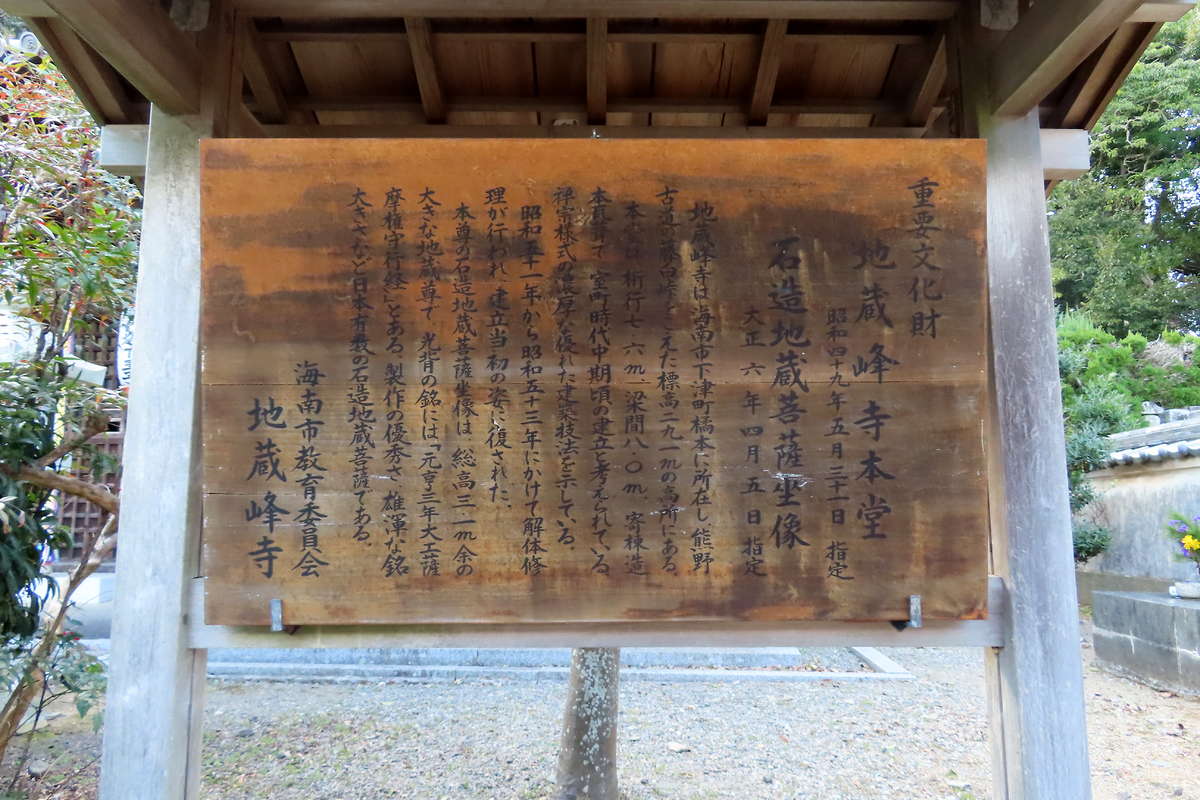 重要文化財
地蔵峰寺本堂
昭和四十九年五月三十一日 指定
石造地蔵菩薩坐像
大正六年四月五日 指定
地蔵峰寺は海南市下津町橘本に所在し、熊野
古道の藤白峠をこえた標高二九一mの高所にある。
本堂は、桁行七・六m、梁間八・〇m、寄棟造
本瓦葺で、室町時代中期頃の建立と考えられている。
禅宗様式の濃厚な優れた建築技法を示している。
昭和五十一年から昭和五十三年にかけて解体修
理が行われ、建立当初の姿に復された。
本尊の石造地蔵菩薩坐像は、総高三・一m余の
大きな地蔵尊で、光背の銘には、「元亨三年大工薩
摩権守行経」とある。製作の優秀さ、雄渾な銘
大きさなど日本有数の石造地蔵菩薩である。
海南市教育委員会
地蔵峰寺